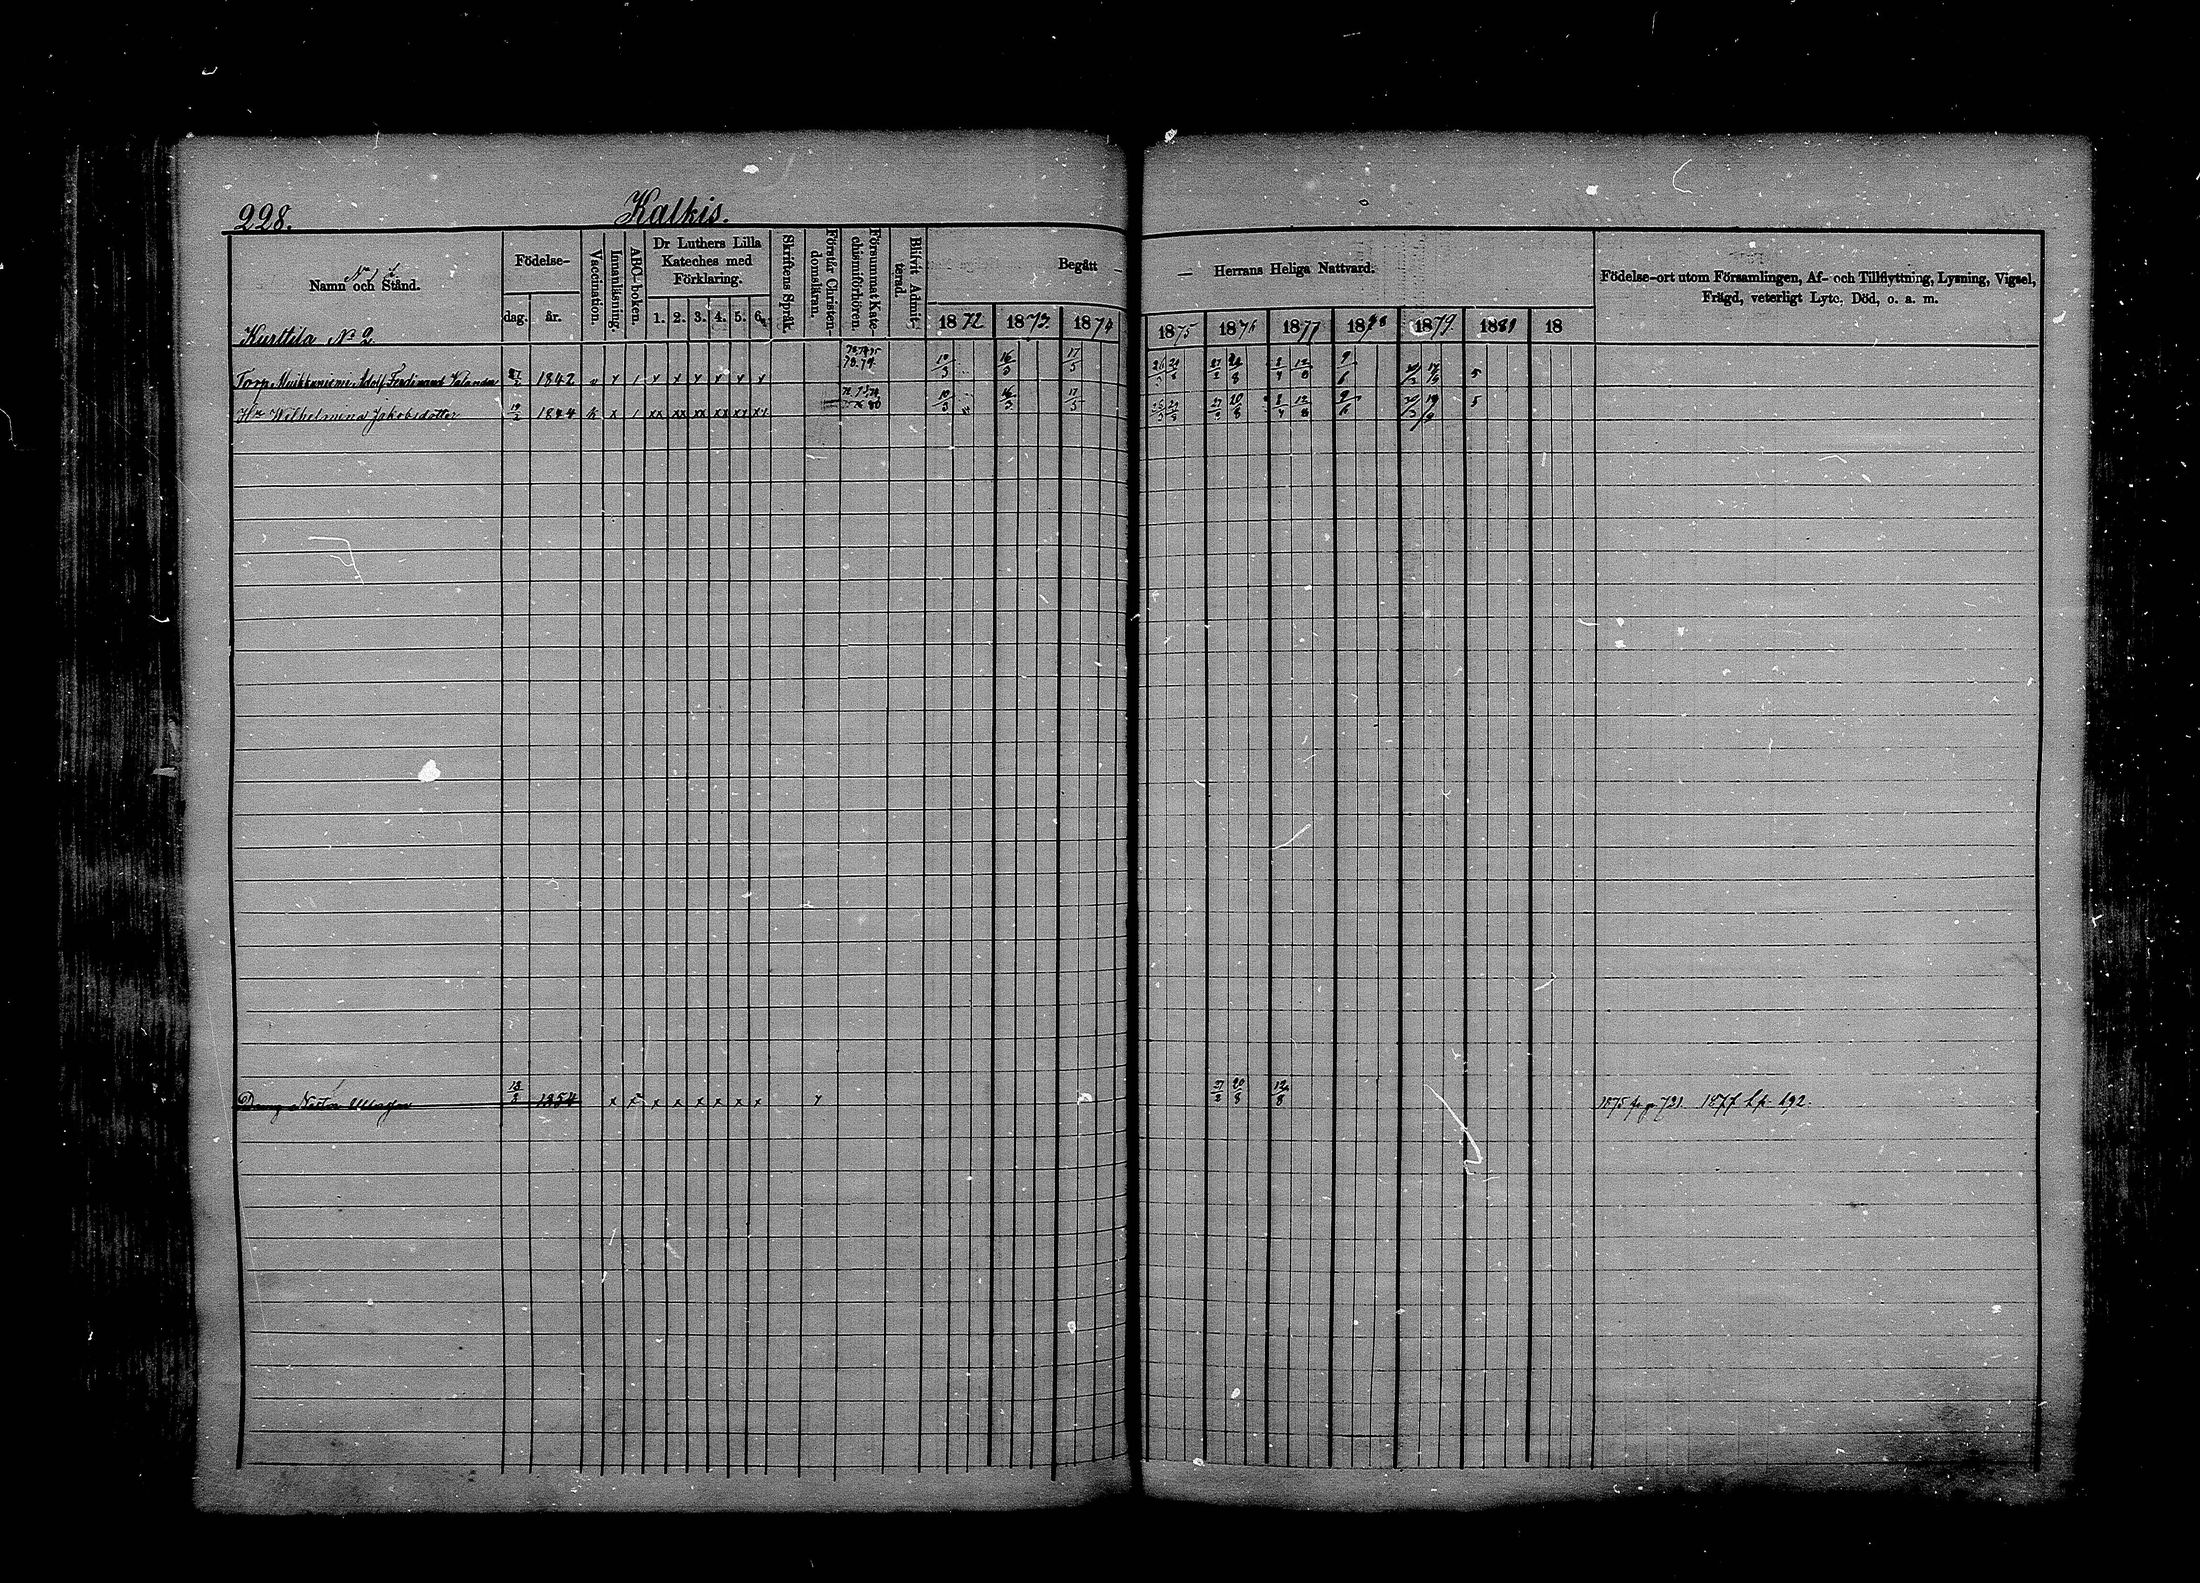 228.
Kalkis.
No 1 &
Namn och Stånd.
Födelse-
dag. år.
Vaccination.
Innanläsning.
ABC-boken.
Dr Luthers Lilla
Kateches med
Förklaring.
1. 2. 3. 4. 5. 6.
Skriftens Språk.
Förstår Christen-
domsläran.
Försummat Kate-
chismiförhören.
Blifvit Admit-
terad.
Begått — — Herrans Heliga Nattvard.
1872 1873 1874 1875 1876 1877 1878 1879 1881 18
Födelse-ort utom Församlingen, Af- och Tillflyttning, Lysning, Vigsel,
Frägd, veterligt Lyte, Död, o. a. m.
Kurttila No 2
Torp. Adolf Ferdinand 1842 v x 1 x x x x x x 10/3 16/3 17/5 27/2 20/8 12/8 5
Hu Wilhelmina Jakobsdotter 19/2 1844 x 1 xx xx xx xx xx xx 10/3 16/3 17/5 27/2 20/8 12/8 5
Dreng 18/8 1854 x x x x x x x x 27/2 20/8 12/8 1875 fr p 721. 1877 t. p. 192.